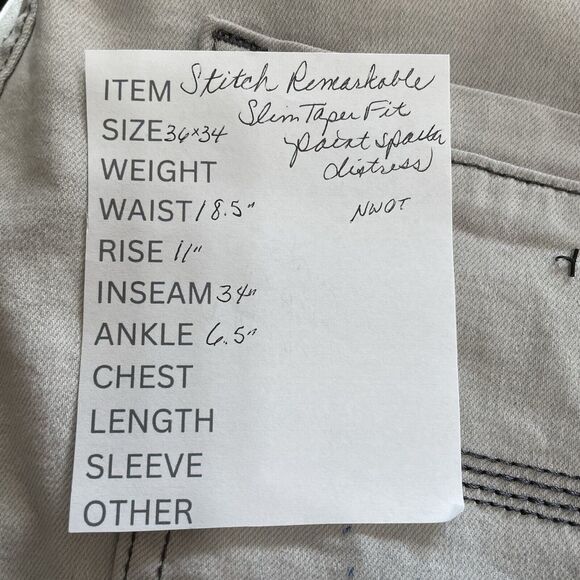 ITEM Stitch Remarkable
Slim Taper Fit
SIZE 36x34
paint spatter
WEIGHT
distress
WAIST 18.5"
NWOT
RISE 11"
INSEAM 34"
ANKLE 6.5"
CHEST
LENGTH
SLEEVE
OTHER